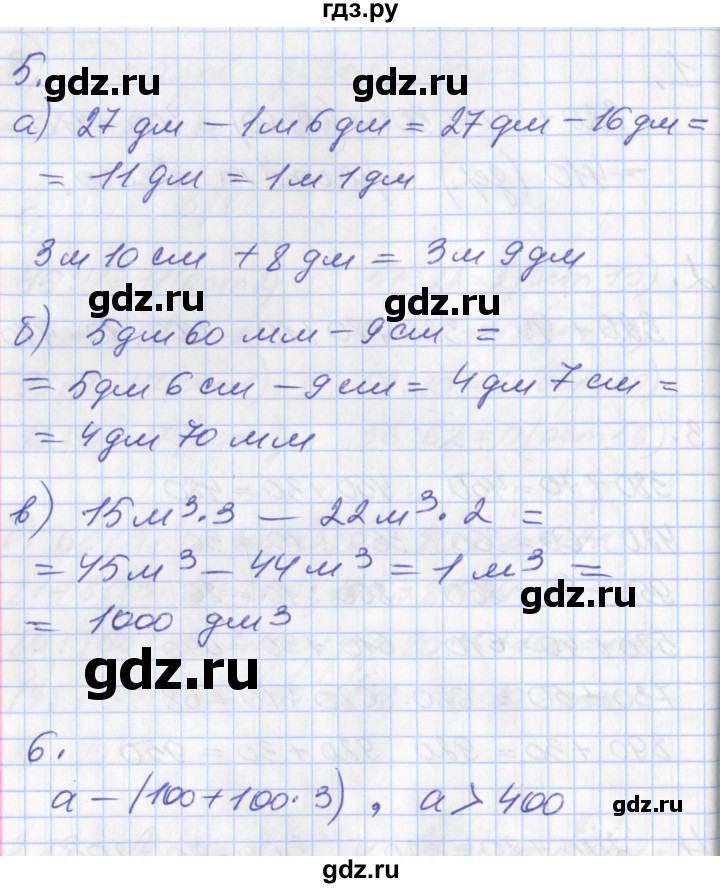 гдз.ру
5.
gdz.ru gdz.ru
а) 27 дм − 1м 6 дм = 27 дм − 16 дм =
= 11 дм = 1м 1 дм
3 м 10 см + 8 дм = 3 м 9 дм
gdz.ru gdz.ru
б) 5 дм 60 мм − 9 см =
= 5 дм 6 см − 9 см = 4 дм 7 см =
= 4 дм 70 мм
в) 15 м³ · 3 − 22 м³ · 2 =
= 45 м³ − 44 м³ = 1 м³ =
gdz.ru
= 1000 дм³
gdz.ru
6.
а − (100 + 100 · 3) , а > 400
gdz.ru
gdz.ru